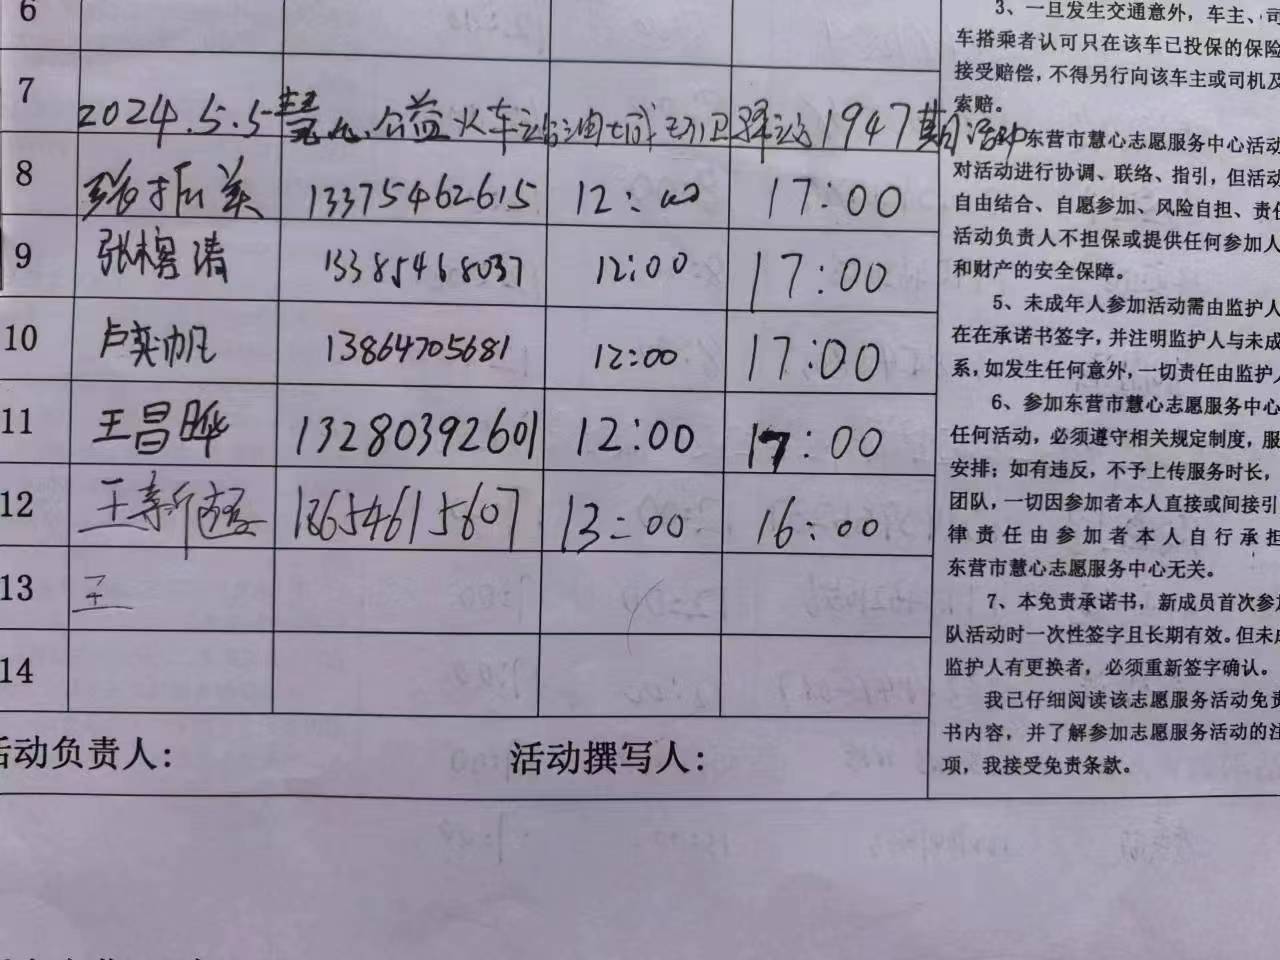 6
7
2024.5.5慧心公益火车站 1947期活动
8 张振美 13375462615 12:00 17:00
9 张 涛 13385468037 12:00 17:00
10 卢奕帆 13864705681 12:00 17:00
11 王昌晔 13280392601 12:00 17:00
12 王新 13654615607 13:00 16:00
13 王
14
活动负责人: 活动撰写人:
3、一旦发生交通意外，车主、司
车搭乘者认可只在该车已投保的保险
接受赔偿，不得另行向该车主或司机及
索赔。
东营市慧心志愿服务中心活动
对活动进行协调、联络、指引，但活动
自由结合、自愿参加、风险自担、责任
活动负责人不担保或提供任何参加人
和财产的安全保障。
5、未成年人参加活动需由监护人
在在承诺书签字，并注明监护人与未成
系，如发生任何意外，一切责任由监护人
6、参加东营市慧心志愿服务中心
任何活动，必须遵守相关规定制度，服
安排；如有违反，不予上传服务时长，
团队，一切因参加者本人直接或间接引
律责任由参加者本人自行承担
东营市慧心志愿服务中心无关。
7、本免责承诺书，新成员首次参加
队活动时一次性签字且长期有效。但未成
监护人有更换者，必须重新签字确认。
我已仔细阅读该志愿服务活动免责
书内容，并了解参加志愿服务活动的注
项，我接受免责条款。